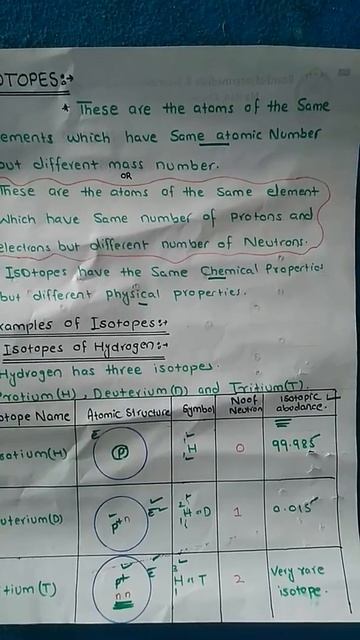 OTOPES:→
* These are the atoms of the Same
ements which have Same atomic Number
but different mass number.
OR
These are the atoms of the Same element
Which have Same number of protons and
electrons but different number of Neutrons.
ISotopes have the Same Chemical Properties
but different physical properties.
xamples of Isotopes:→
Isotopes of Hydrogen:→
Hydrogen has three isotopes.
Protium(H), Deuterium(D) and Tritium(T).
otope Name Atomic Structure Symbol No of Neutron isotopic abodance.
otium(H) E P H 0 99.985
uterium(D) P+ n E H or D 1 0.015
tium (T) P+ nn E H or T 2 Very rare isotope.